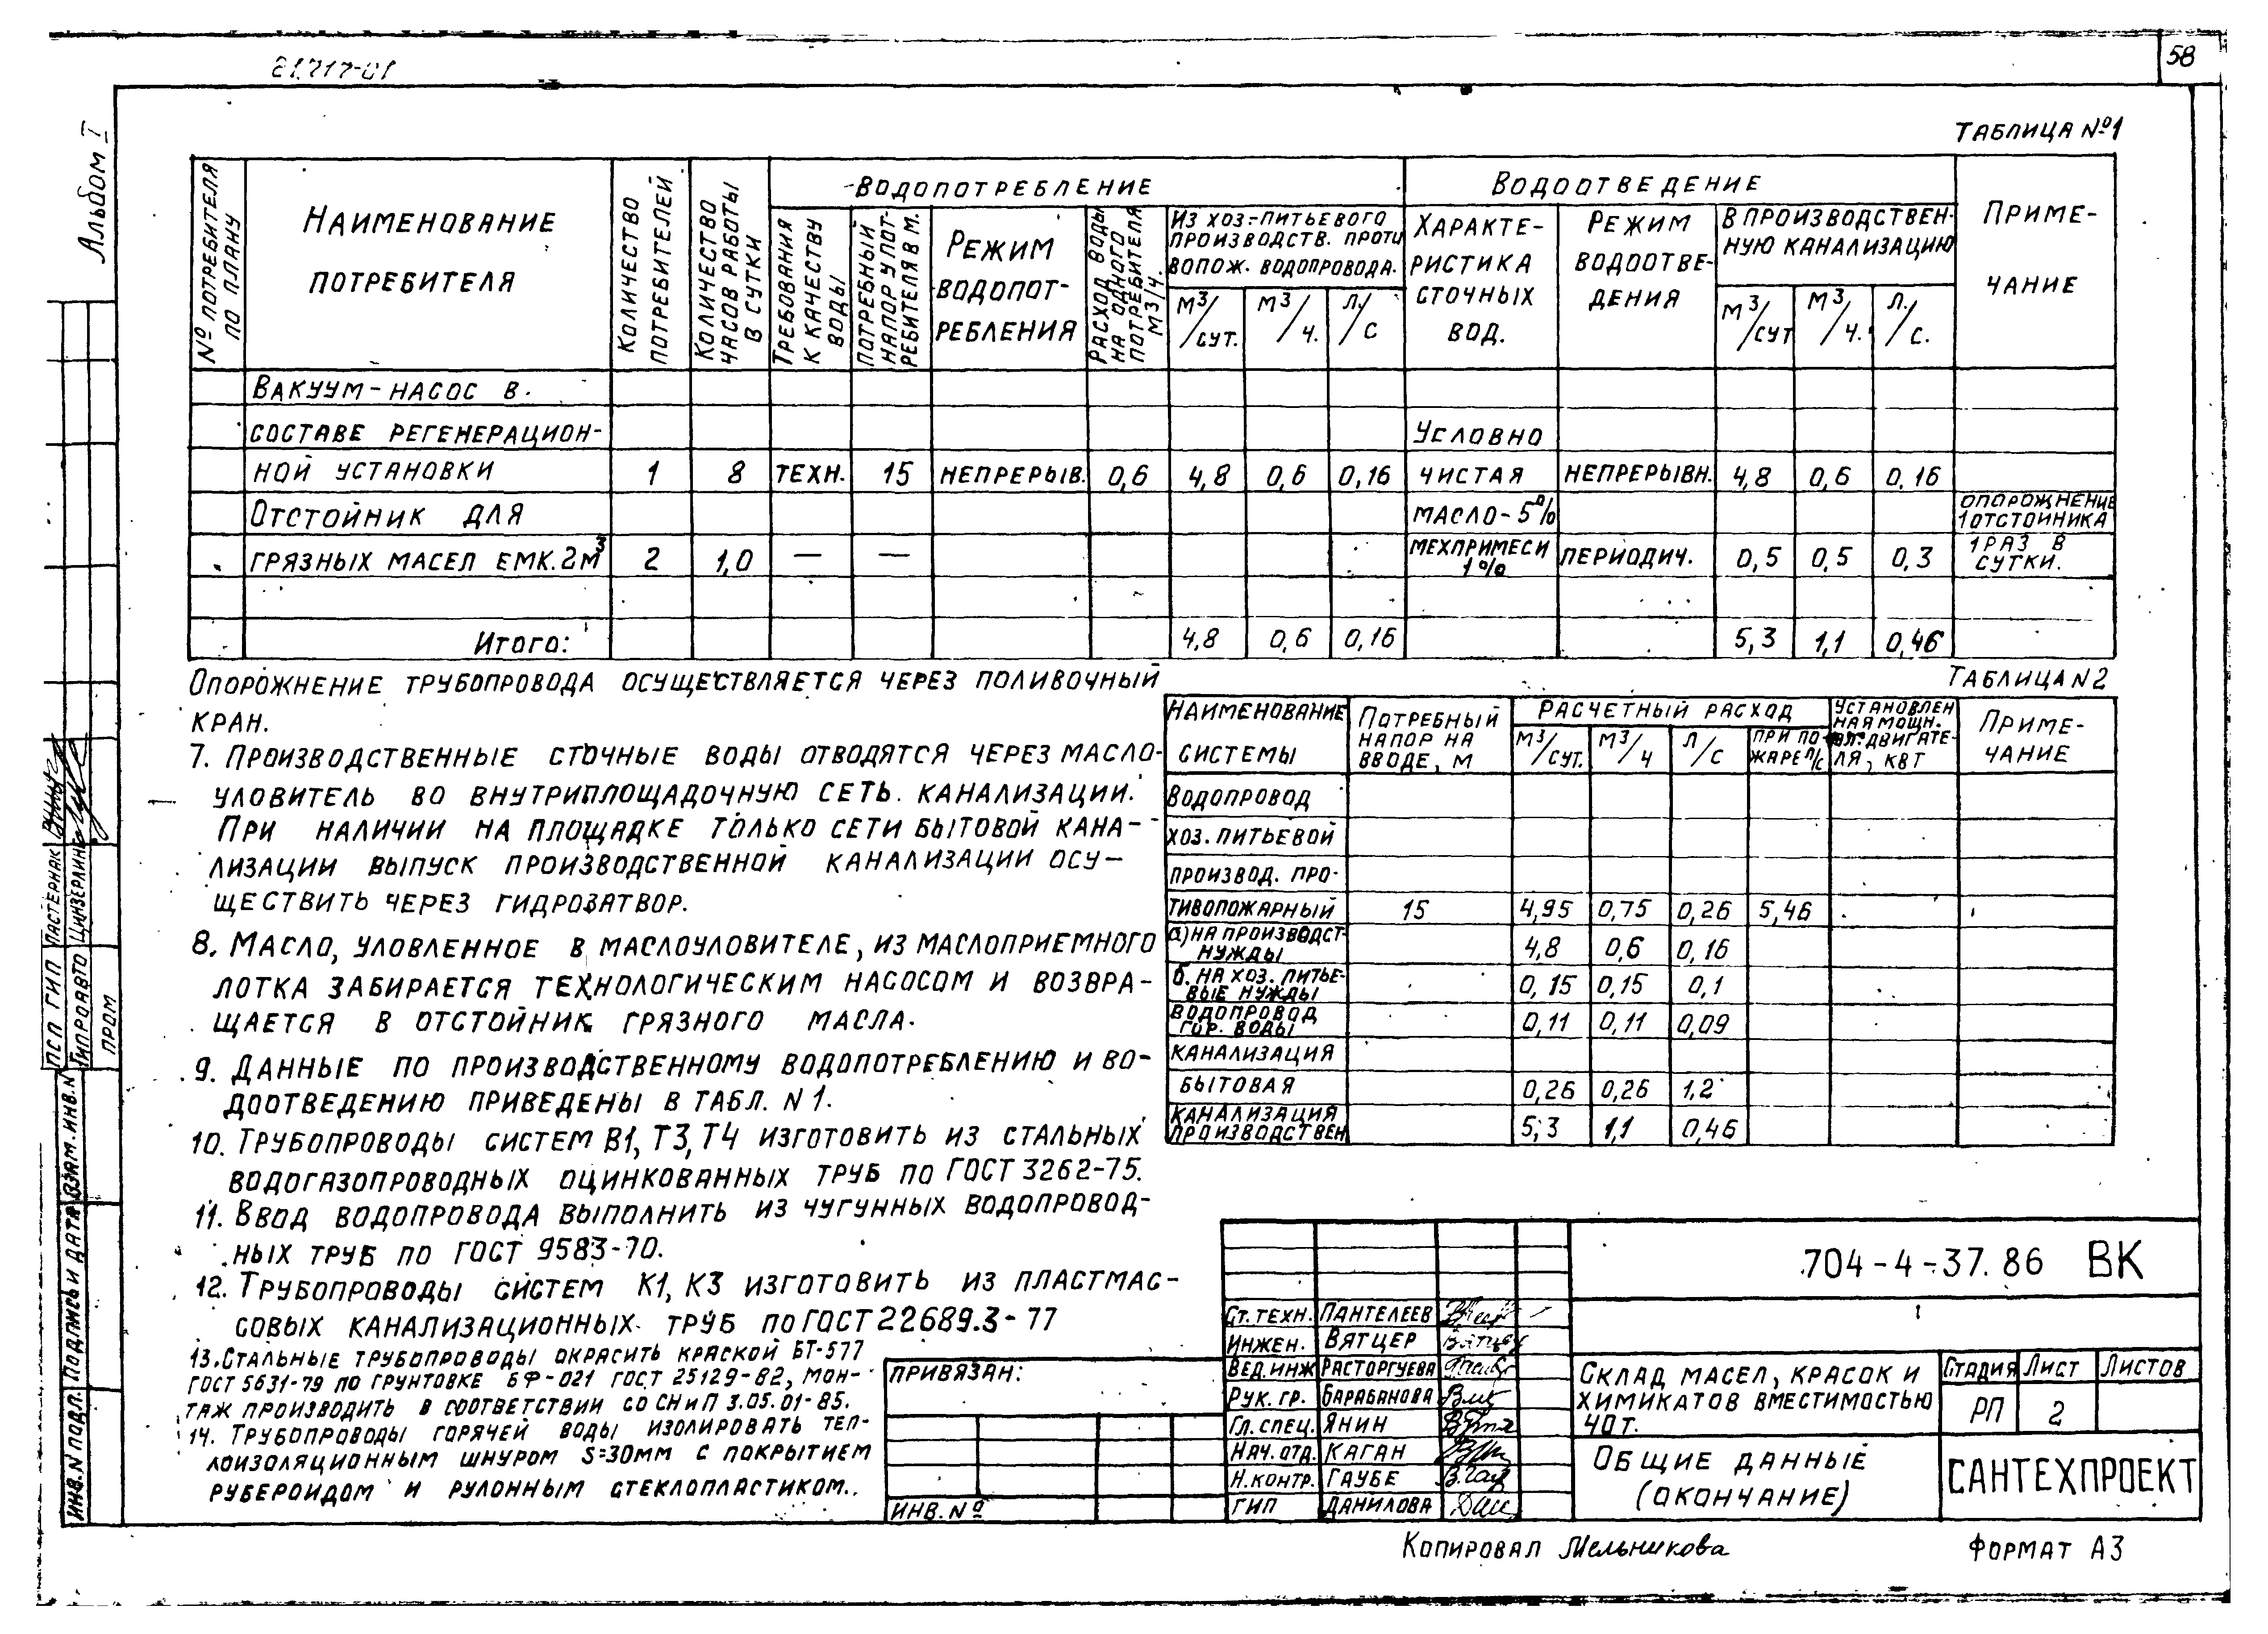 21717-01
58
Альбом I
Таблица №1
№ потребителя по плану
Наименование потребителя
Количество потребителей
Количество часов работы в сутки
Водопотребление
Требования к качеству воды
Потребный напор у потребителя в м.
Режим водопотребления
Расход воды на одного потребителя м3/ч.
Из хоз.-питьевого производств. проти вопож. водопровода.
м3/сут.
м3/ч.
л/с
Водоотведение
Характеристика сточных вод.
Режим водоотведения
В производственную канализацию
м3/сут
м3/ч.
л./с.
Примечание
Вакуум-насос в
составе регенерацион- Условно
ной установки 1 8 техн. 15 непрерыв. 0,6 4,8 0,6 0,16 чистая непрерывн. 4,8 0,6 0,16
Отстойник для масло-5% опорожнение 1 отстойника
грязных масел емк. 2м3 2 1,0 — — мехпримеси 1% периодич. 0,5 0,5 0,3 1 раз в сутки.
Итого: 4,8 0,6 0,16 5,3 1,1 0,46
Опорожнение трубопровода осуществляется через поливочный
кран.
7. Производственные сточные воды отводятся через масло-
уловитель во внутриплощадочную сеть. канализации.
При наличии на площадке только сети бытовой кана-
лизации выпуск производственной канализации осу-
ществить через гидрозатвор.
8. Масло, уловленное в маслоуловителе, из маслоприемного
лотка забирается технологическим насосом и возвра-
щается в отстойник грязного масла.
9. Данные по производственному водопотреблению и во-
доотведению приведены в табл. N1.
10. Трубопроводы систем В1, Т3, Т4 изготовить из стальных
водогазопроводных оцинкованных труб по ГОСТ 3262-75.
11. Ввод водопровода выполнить из чугунных водопровод-
ных труб по ГОСТ 9583-70.
12. Трубопроводы систем К1, К3 изготовить из пластмас-
совых канализационных труб по ГОСТ 22689.3-77
13. Стальные трубопроводы окрасить краской БТ-577
ГОСТ 5631-79 по грунтовке БФ-021 ГОСТ 25129-82, мон-
таж производить в соответствии со СНиП 3.05.01-85.
14. Трубопроводы горячей воды изолировать теп-
лоизоляционным шнуром S=30мм с покрытием
рубероидом и рулонным стеклопластиком.
Таблица N2
Наименование системы
Потребный напор на вводе, м
Расчетный расход
м3/сут.
м3/ч
л/с
при пожаре л/с
Установленная мощн. эл. двигателя, квт
Примечание
Водопровод
хоз. питьевой
производ. про-
тивопожарный 15 4,95 0,75 0,26 5,46
а) на производст нужды 4,8 0,6 0,16
б. на хоз. питьевые нужды 0,15 0,15 0,1
Водопровод гор. воды 0,11 0,11 0,09
Канализация
бытовая 0,26 0,26 1,2
Канализация производствен 5,3 1,1 0,46
704-4-37.86 ВК
Ст. техн. Пантелеев
Инжен. Вятцер
Вед. инж Расторгуева
Рук. гр. Барабанова
Гл. спец. Янин
Нач. отд. Каган
Н. контр. Гаубе
ГИП Данилова
Склад масел, красок и
химикатов вместимостью
40т.
Стадия Лист Листов
РП 2
Общие данные
(окончание)
САНТЕХПРОЕКТ
Привязан:
Инв. №
Копировал Мельникова
Формат А3
ПСП ГИП Пастернак
Гипроавтопром Цинзерлинг
Инв. N подл. Подпись и дата Взам. инв. N